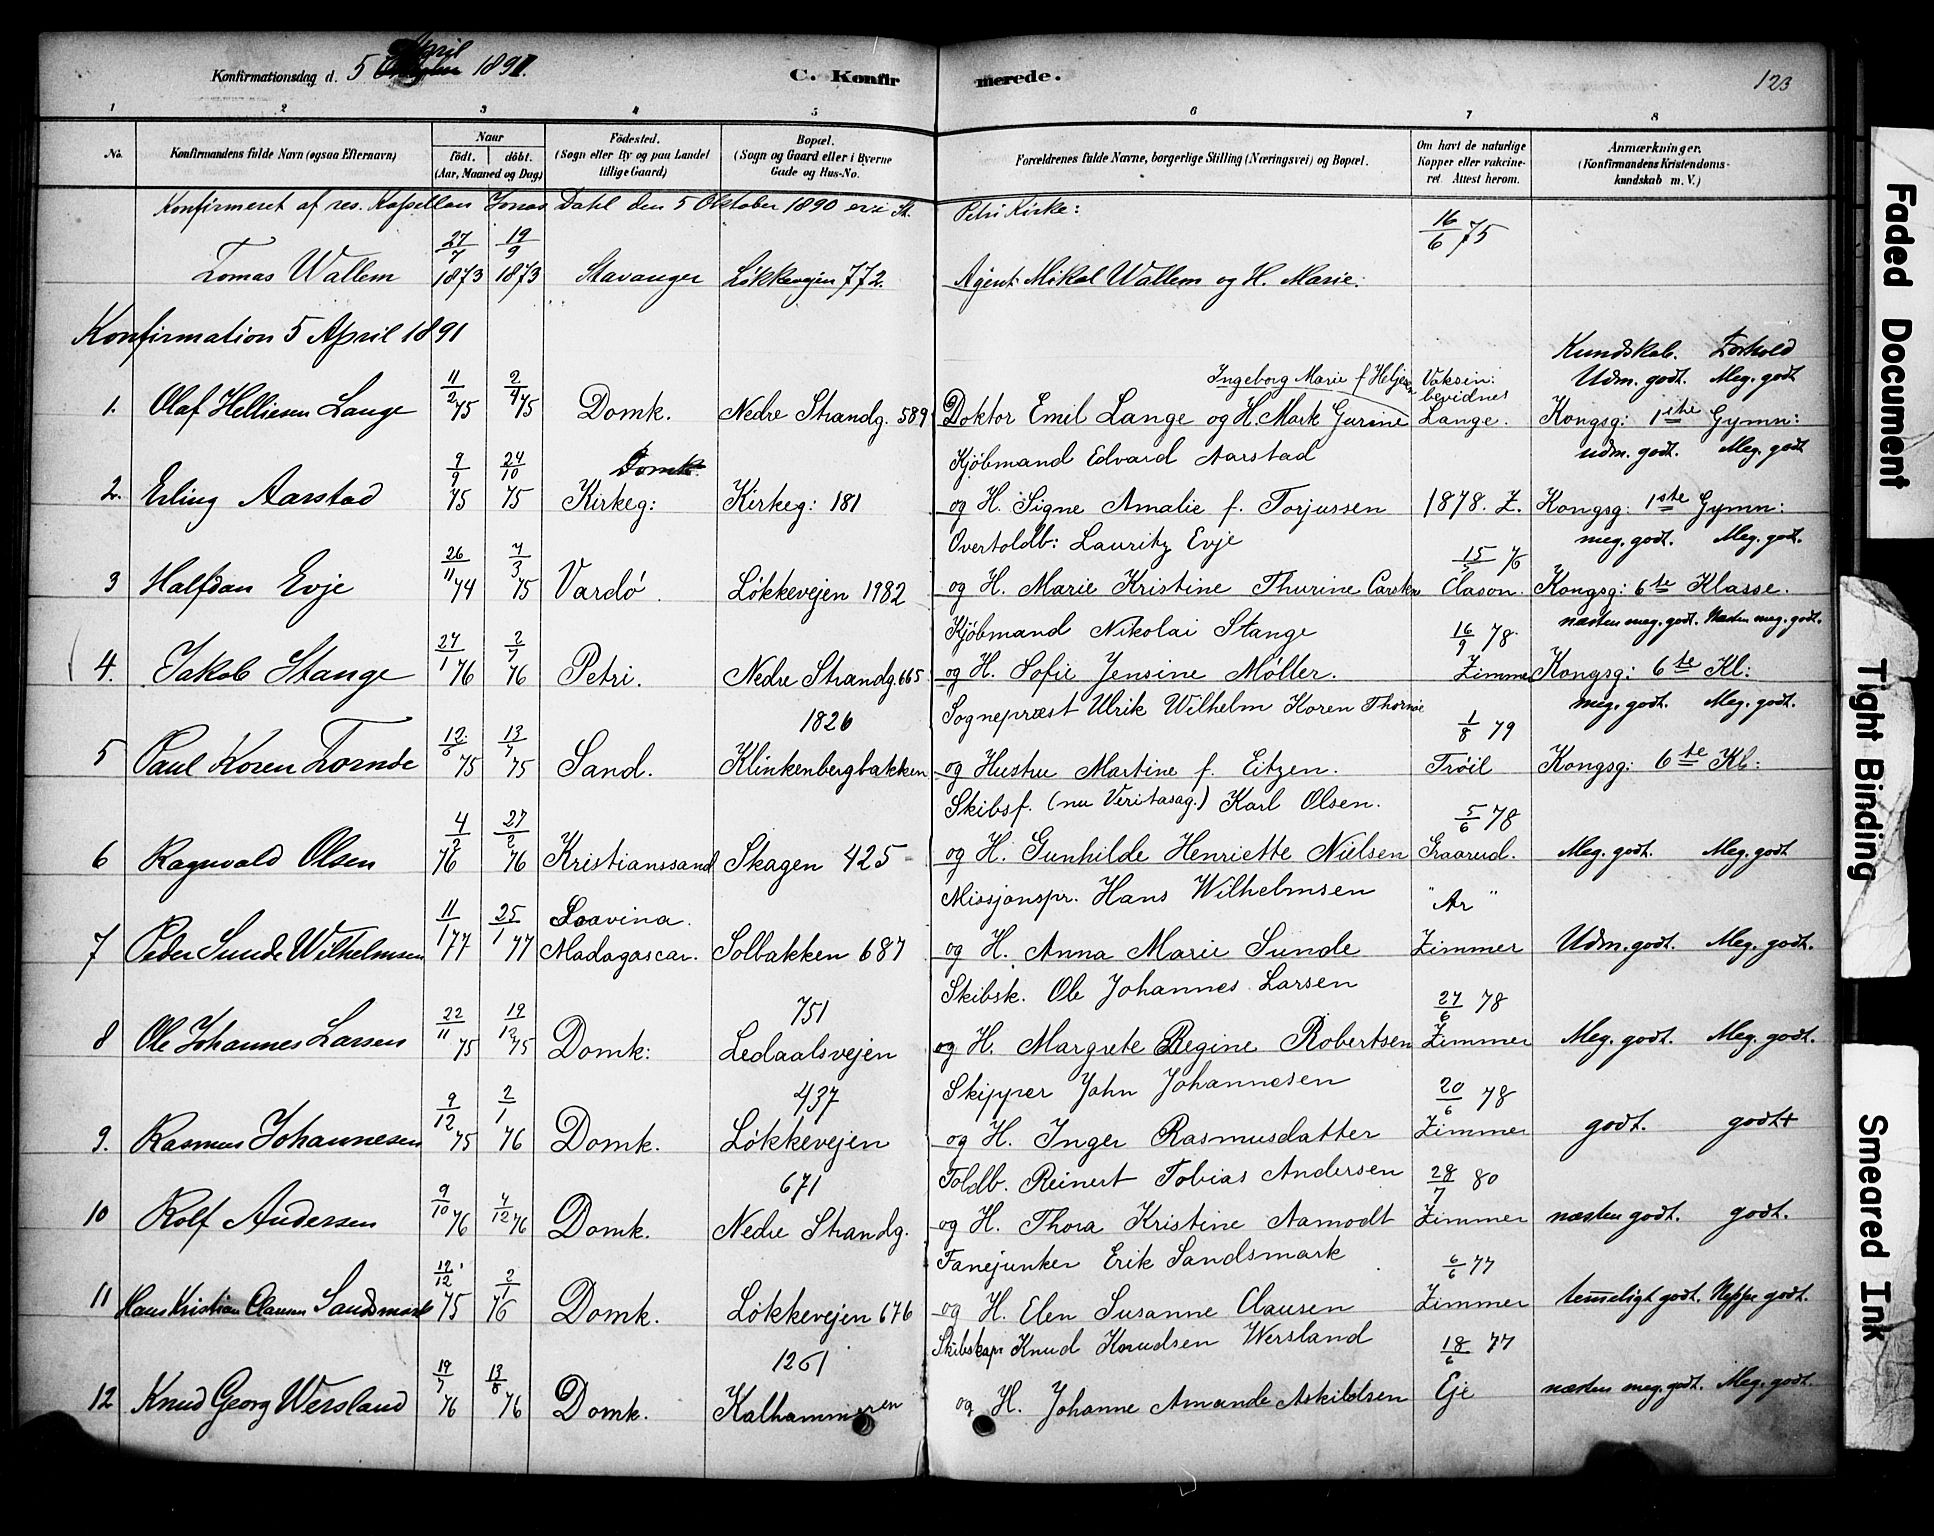 Konfirmationsdag d. 5 April 1891.
C. Konfirmerede.
123
1 2 3 4 5 6 7 8
No. Konfirmandens fulde Navn (ogsaa Efternavn) Naar födt. döbt. (Aar, Maaned og Dag) Födested. (Sogn eller By og paa Landet tillige Gaard) Bopæl. (Sogn og Gaard eller i Byerne Gade og Hus-No. Forældrenes fulde Navne, borgerlige Stilling (Næringsvei) og Bopæl. Om havt de naturlige Kopper eller vakcineret. Attest herom. Anmærkninger. (Konfirmandens Kristendomskundskab m. V.)
Konfirmeret af res. Kapellan Jonas Dahl den 5 Oktober 1890 i St. Petri Kirke:
27/7 19/9 16/6 75
Tomas Wallem 1873 1873 Stavanger Løkkevejen 772. Agent Mikal Wallem og H. Marie.
Konfirmation 5 April 1891
Kundskab. Forhold
11/2 2/4 Ingeborg Marie f Heljesen Vaksin: bevidnes Udm. godt. Meg. godt
1. Olaf Helliesen Lange 75 75 Domk. Nedre Strandg. 589 Doktor Emil Lange og H. Mark Gurine Lange. Kongsg: 1ste Gymn:
9/9 24/10 Domk. Kjøbmand Edvard Aarstad udm. godt. Meg. godt
2. Erling Aarstad 75 75 Kirkeg: Kirkeg: 181 og H. Signe Amalie f. Torjussen 1878. Z. Kongsg: 1ste Gymn:
26/11 7/3 Overtoldb: Lauritz Evje 15/5 76 meg. godt. Meg. godt.
3 Halfdan Evje 74 75 Vardö. Løkkevejen 1982 og H. Marie Kristine Thurine Carsten Clason. Kongsg: 6te Klasse.
27/1 2/7 Kjöbmand Nikolai Stange 16/9 78. næsten meg. godt. Næsten meg. godt.
4. Jakob Stange 76 76 Petri. Nedre Strandg. 665 og H. Sofie Jensine Møller. Zimmer Kongsg: 6te Kl:
12/6 13/7 1826 Sognepræst Ulrik Wilhelm Koren Thornöe 1/8 79 meg. godt. Meg. godt.
5 Paul Koren Tornöe 75 75 Sand. Klinkenbergbakken og Hustru Martine f. Eitzen. Tröil Kongsg: 6te Kl:
4/2 27/2 Skibsf. (nu Veritasag.) Karl Olsen. 5/6 78
6 Ragnvald Olsen 76 76 Kristianssand Skagen 425 og H. Gunhilde Henriette Nielsen Graarud. Meg. godt. Meg. godt
11/1 25/1 Loavina. Missjonspr. Hans Wilhelmsen " Ar "
7 Peder Sunde Wilhelmsen 77 77 Madagascar. Solbakken 687 og H. Anna Marie Sunde Zimmer Udm. godt. Meg. godt.
22/11 19/12 751 Skibsk. Ole Johannes Larsen 27/6 78
8 Ole Johannes Larsen 75 75 Domk: Ledaalsvejen og H. Margrete Regine Robertsen Zimmer Meg. godt. Meg. godt.
9/12 2/1 437 Skipper John Johannesen 20/6 78
9. Rasmus Johannesen 75 76 Domk. Løkkevejen og H. Inger Rasmusdatter Zimmer godt. godt
9/10 7/12 671 Toldb. Reinert Tobias Andersen 28/7 80
10 Rolf Andersen 76 76 Domk. Nedre Strandg. og H. Thora Kristine Aamodt Zimmer næsten godt. godt.
12/12 2/1 Fanejunker Erik Sandsmark 6/6 77
11 Hans Kristian Clausen Sandsmark 75 76 Domk. Løkkevejen 676 og H. Elen Susanne Clausen Zimmer temeligt godt. Neppe godt.
19/7 13/8 1261 Skibskapt Knud Knudsen Wersland 18/6 77
12 Knud Georg Wersland 76 76 Domk. Kalhammeren og H. Johanne Amande Askildsen Eje næsten meg. godt. Meg. godt.
Faded Document
Tight Binding
Smeared Ink